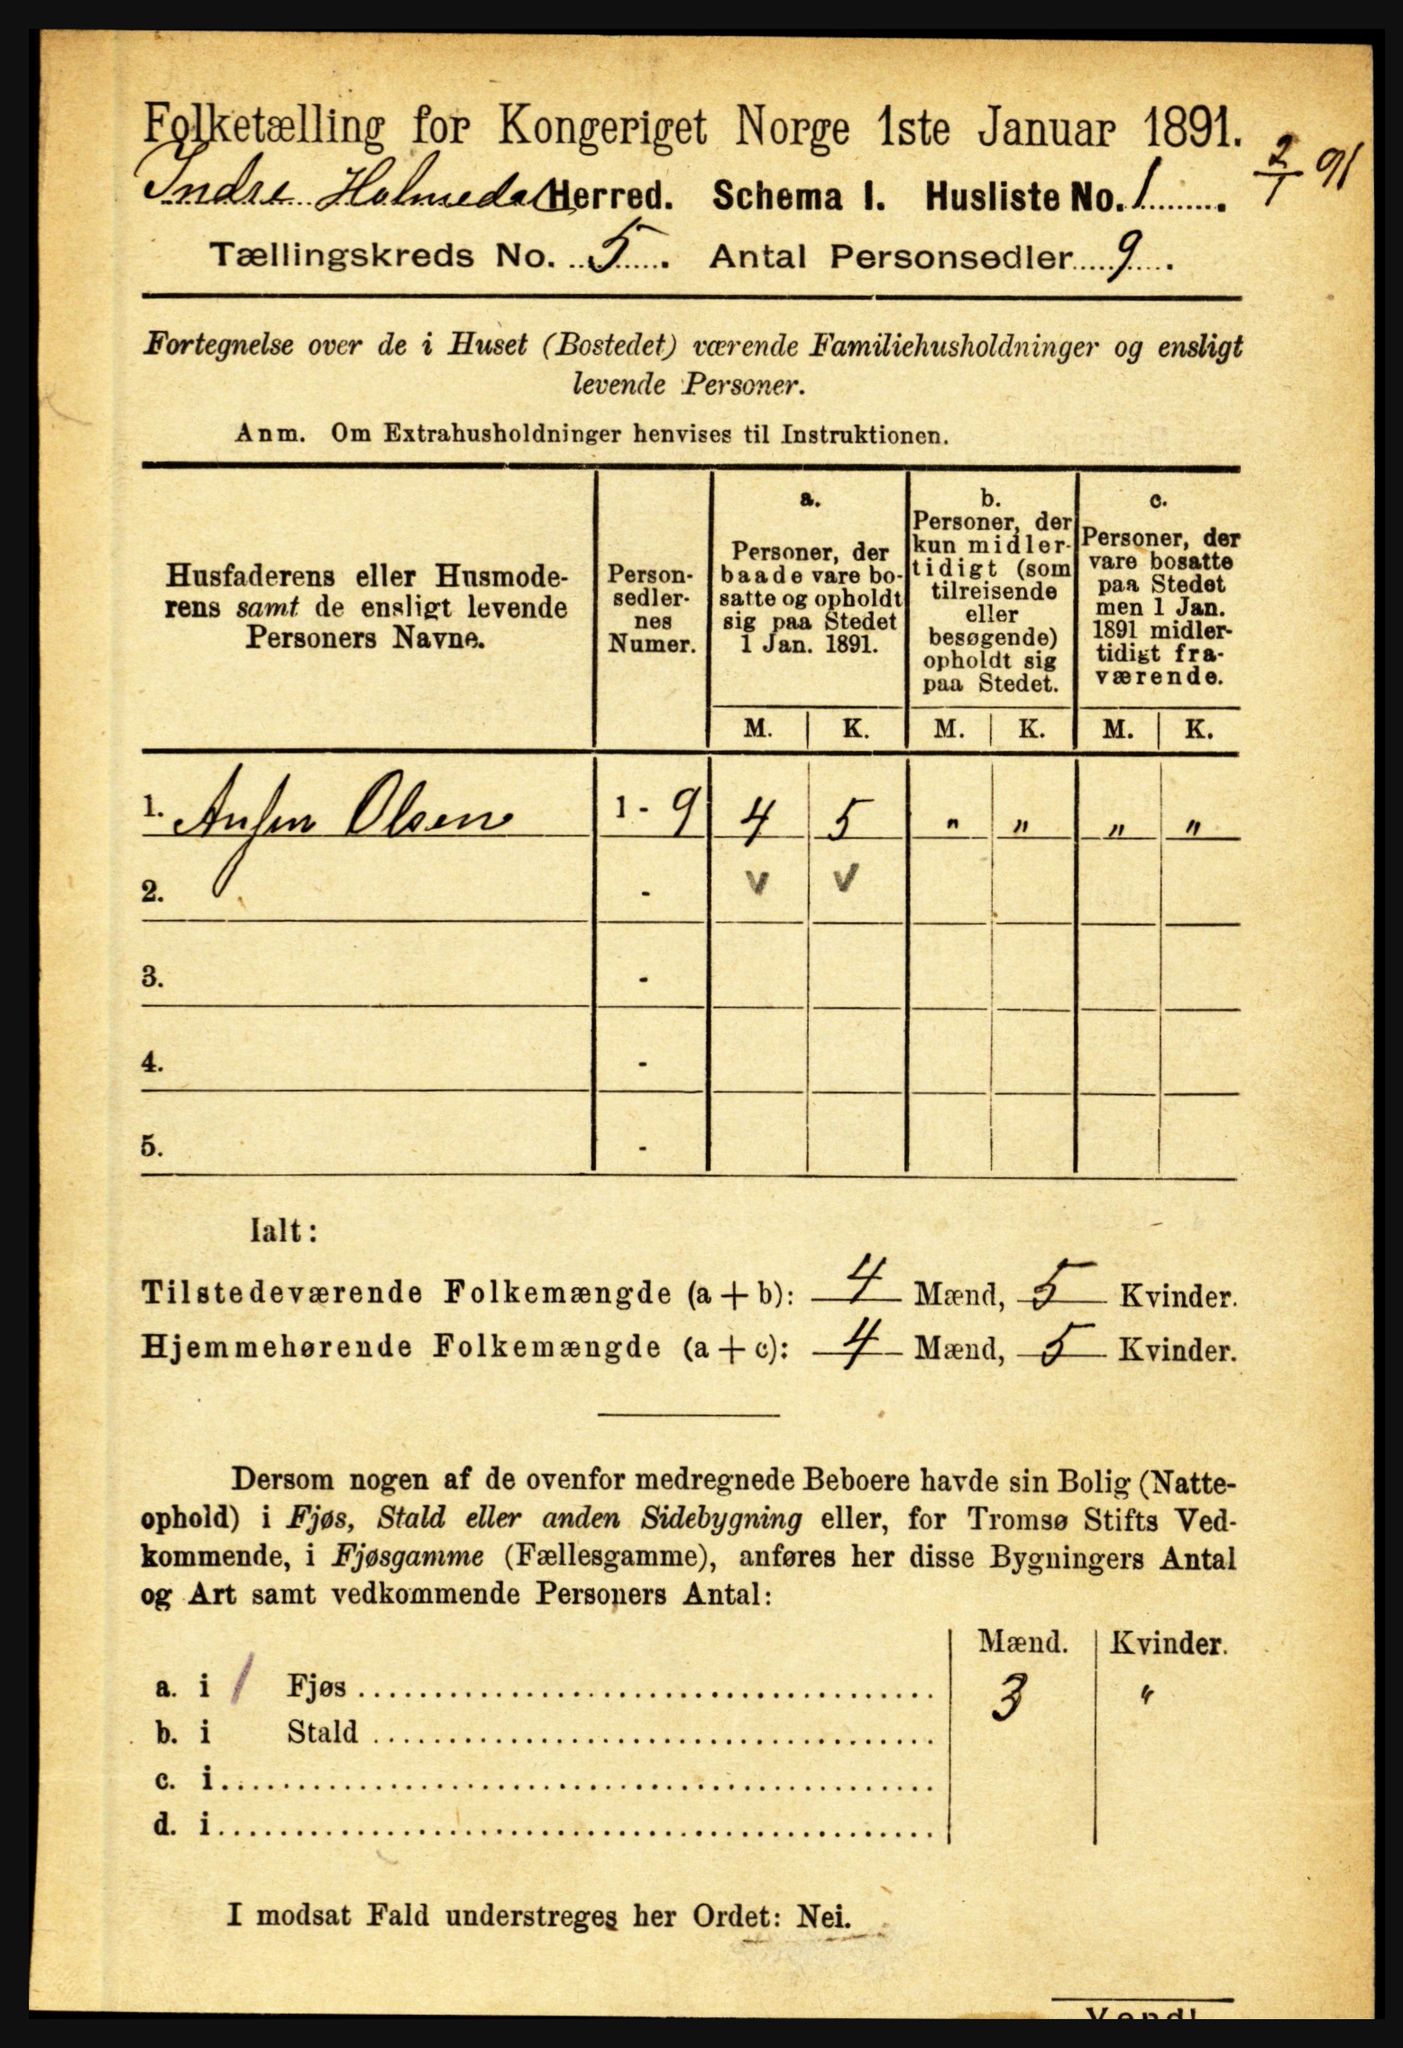 Folketælling for Kongeriget Norge 1ste Januar 1891.
2/1 91
Indre Holmedal Herred. Schema I. Husliste No. 1.
Tællingskreds No. 5. Antal Personsedler 9.
Fortegnelse over de i Huset (Bostedet) værende Familiehusholdninger og ensligt
levende Personer.
Anm. Om Extrahusholdninger henvises til Instruktionen.
Husfaderens eller Husmode-
rens samt de ensligt levende
Personers Navne.
Person-
sedler-
nes
Numer.
a.
Personer, der
baade vare bo-
satte og opholdt
sig paa Stedet
1 Jan. 1891.
b.
Personer, der
kun midler-
tidigt (som
tilreisende
eller
besøgende)
opholdt sig
paa Stedet.
c.
Personer, der
vare bosatte
paa Stedet
men 1 Jan.
1891 midler-
tidigt fra-
værende.
M. K. M. K. M. K.
1. Olsen 1 - 9 4 5 " " " "
2. - v v
3. -
4. -
5. -
Ialt:
Tilstedeværende Folkemængde (a + b): 4 Mænd, 5 Kvinder.
Hjemmehørende Folkemængde (a + c): 4 Mænd, 5 Kvinder.
Dersom nogen af de ovenfor medregnede Beboere havde sin Bolig (Natte-
ophold) i Fjøs, Stald eller anden Sidebygning eller, for Tromsø Stifts Ved-
kommende, i Fjøsgamme (Fællesgamme), anføres her disse Bygningers Antal
og Art samt vedkommende Personers Antal:
Mænd. Kvinder.
a. i 1 Fjøs 3 "
b. i Stald
c. i
d. i
I modsat Fald understreges her Ordet: Nei.
Vend!